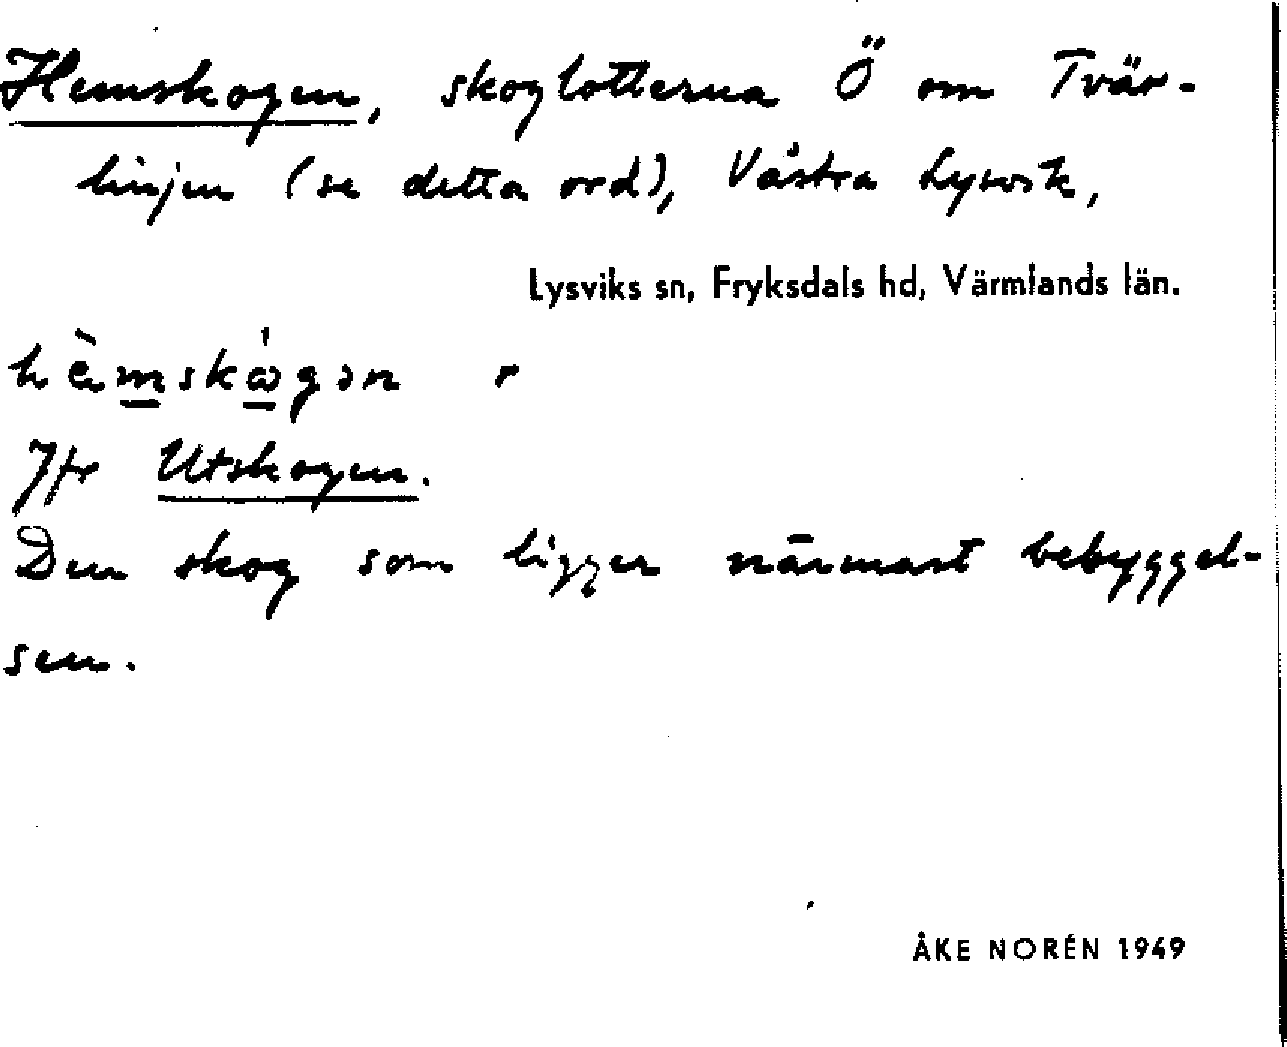 Hemskogen, skoglotterna Ö om Tvär-
linjen (se detta ord), Västra Lysvik,
Lysviks sn, Fryksdals hd, Värmlands län.
hèmskógən r
Jfr Utskogen.
Den skog som ligger närmast bebyggel-
sen.
ÅKE NORÉN 1949